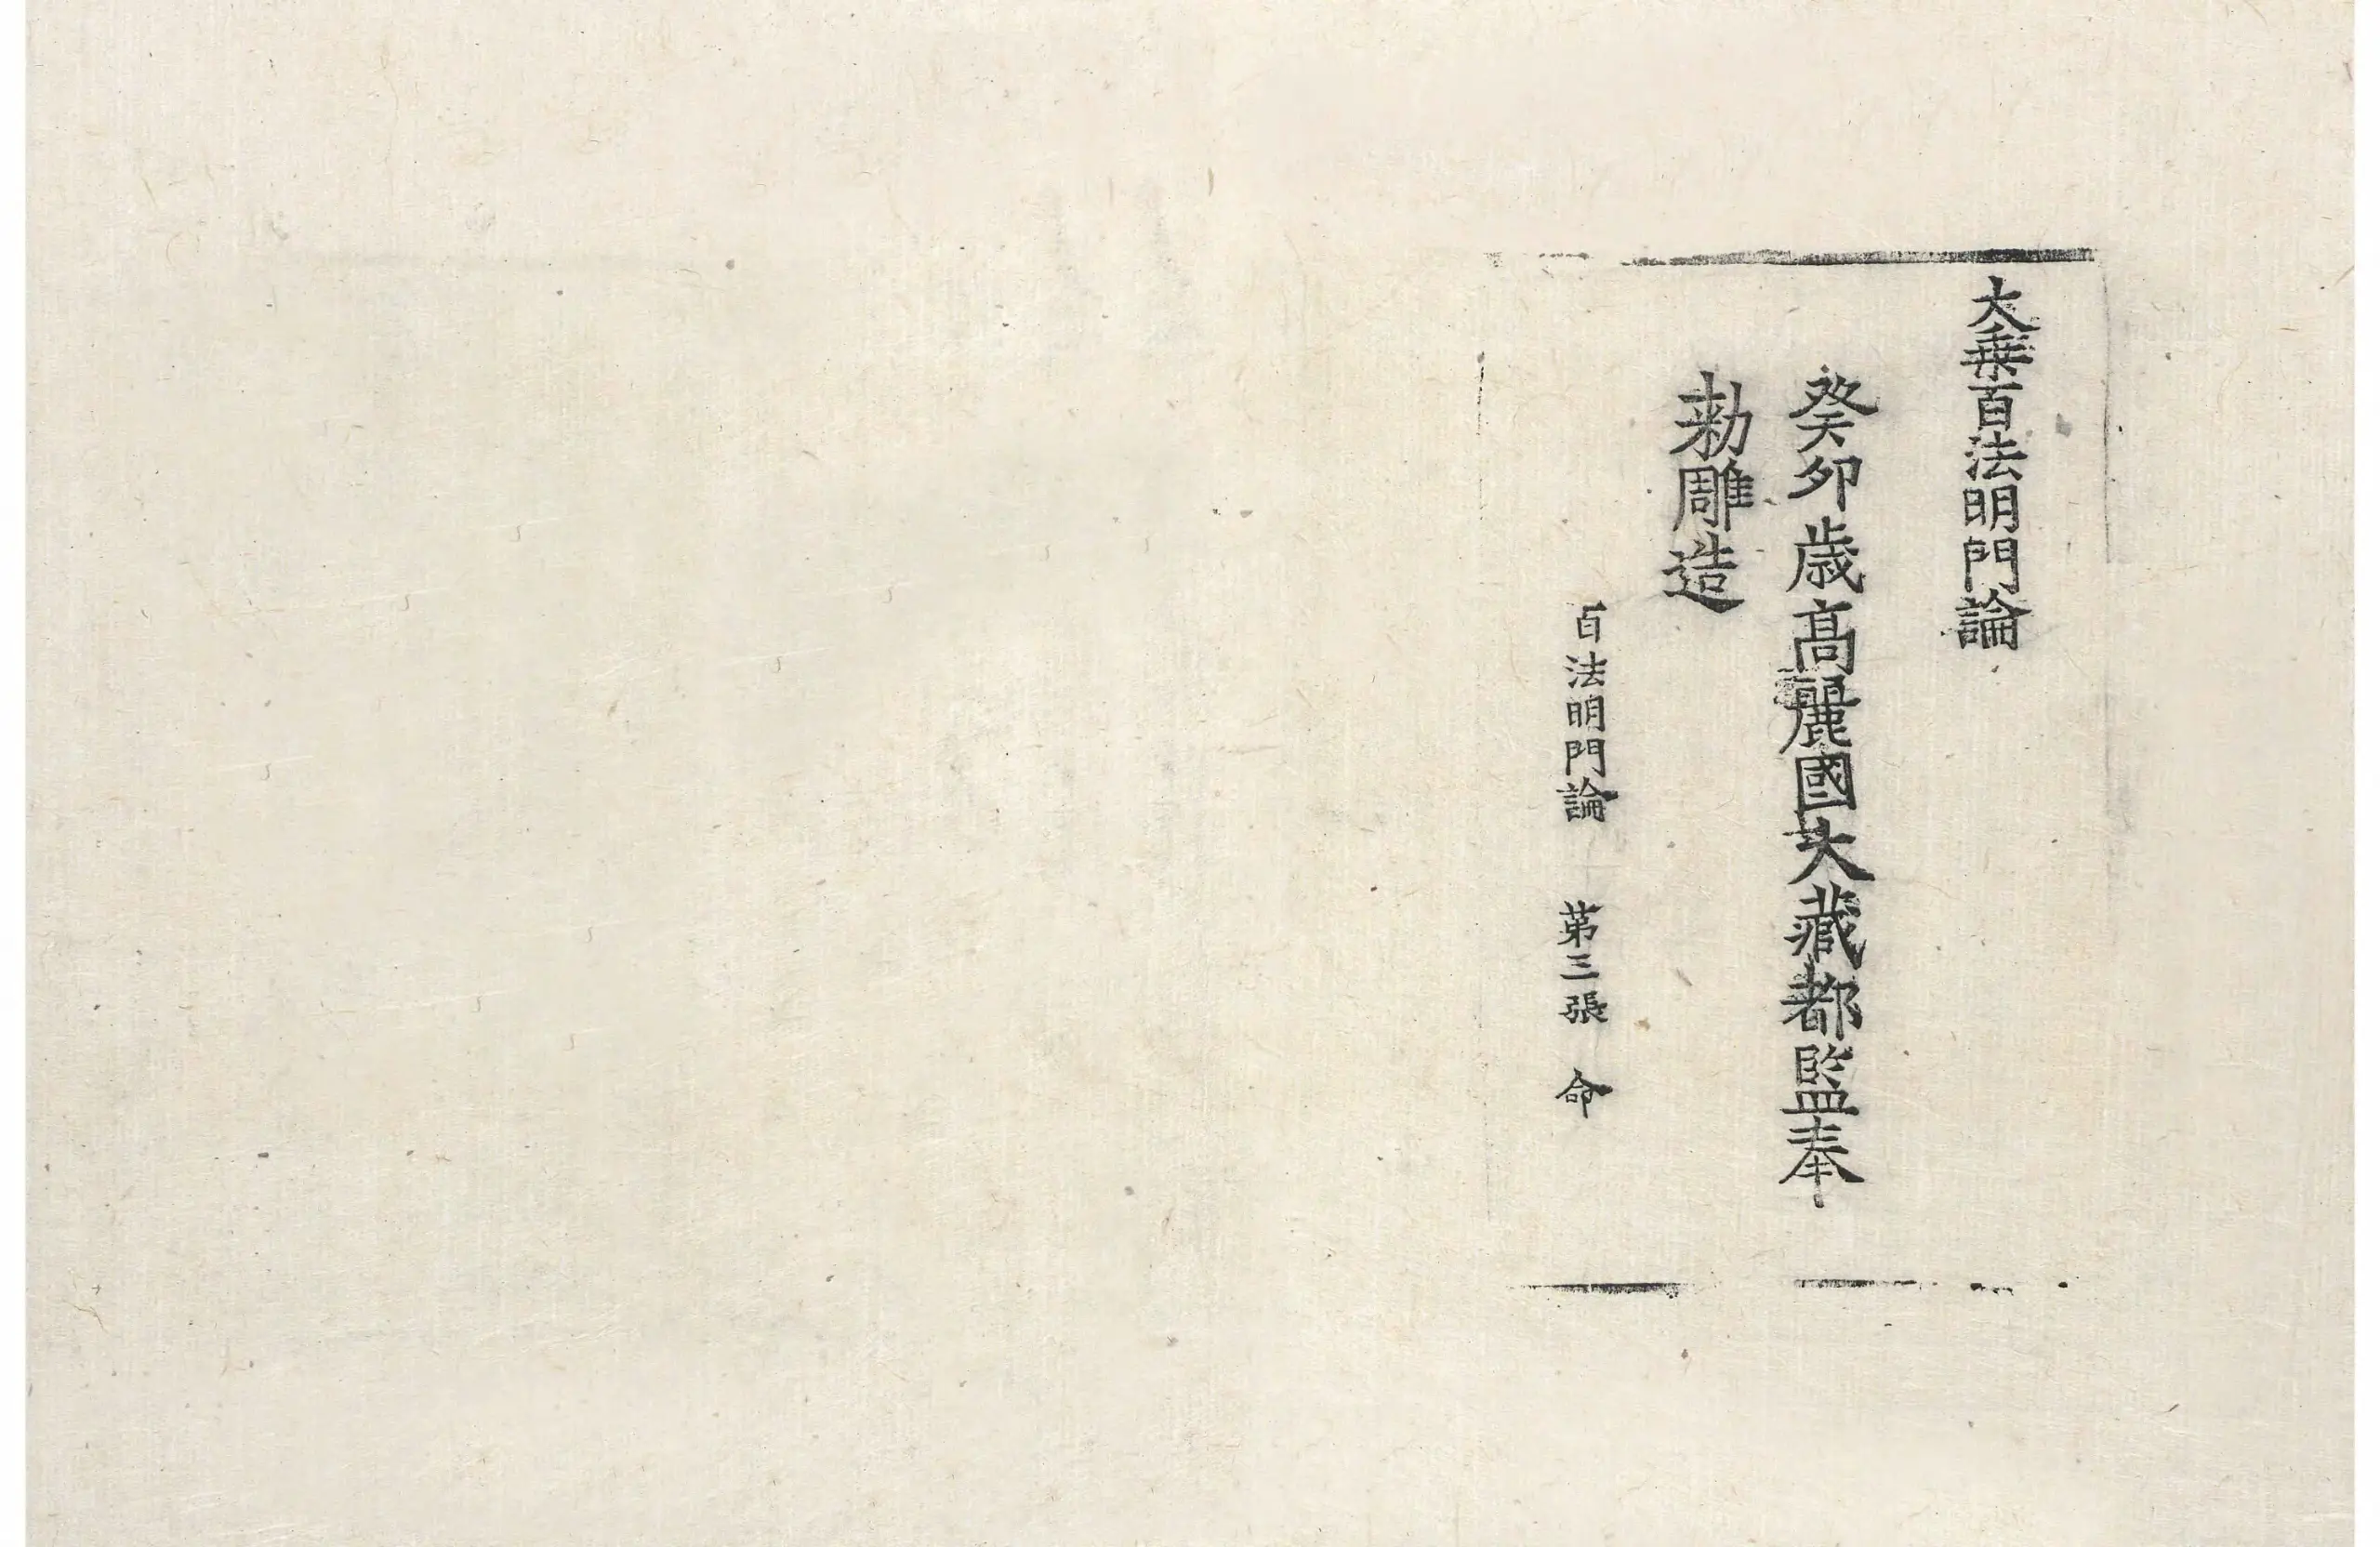 大乗百法明門論
癸卯歳高麗國大藏都監奉
勑雕造
百法明門論 第三張 命